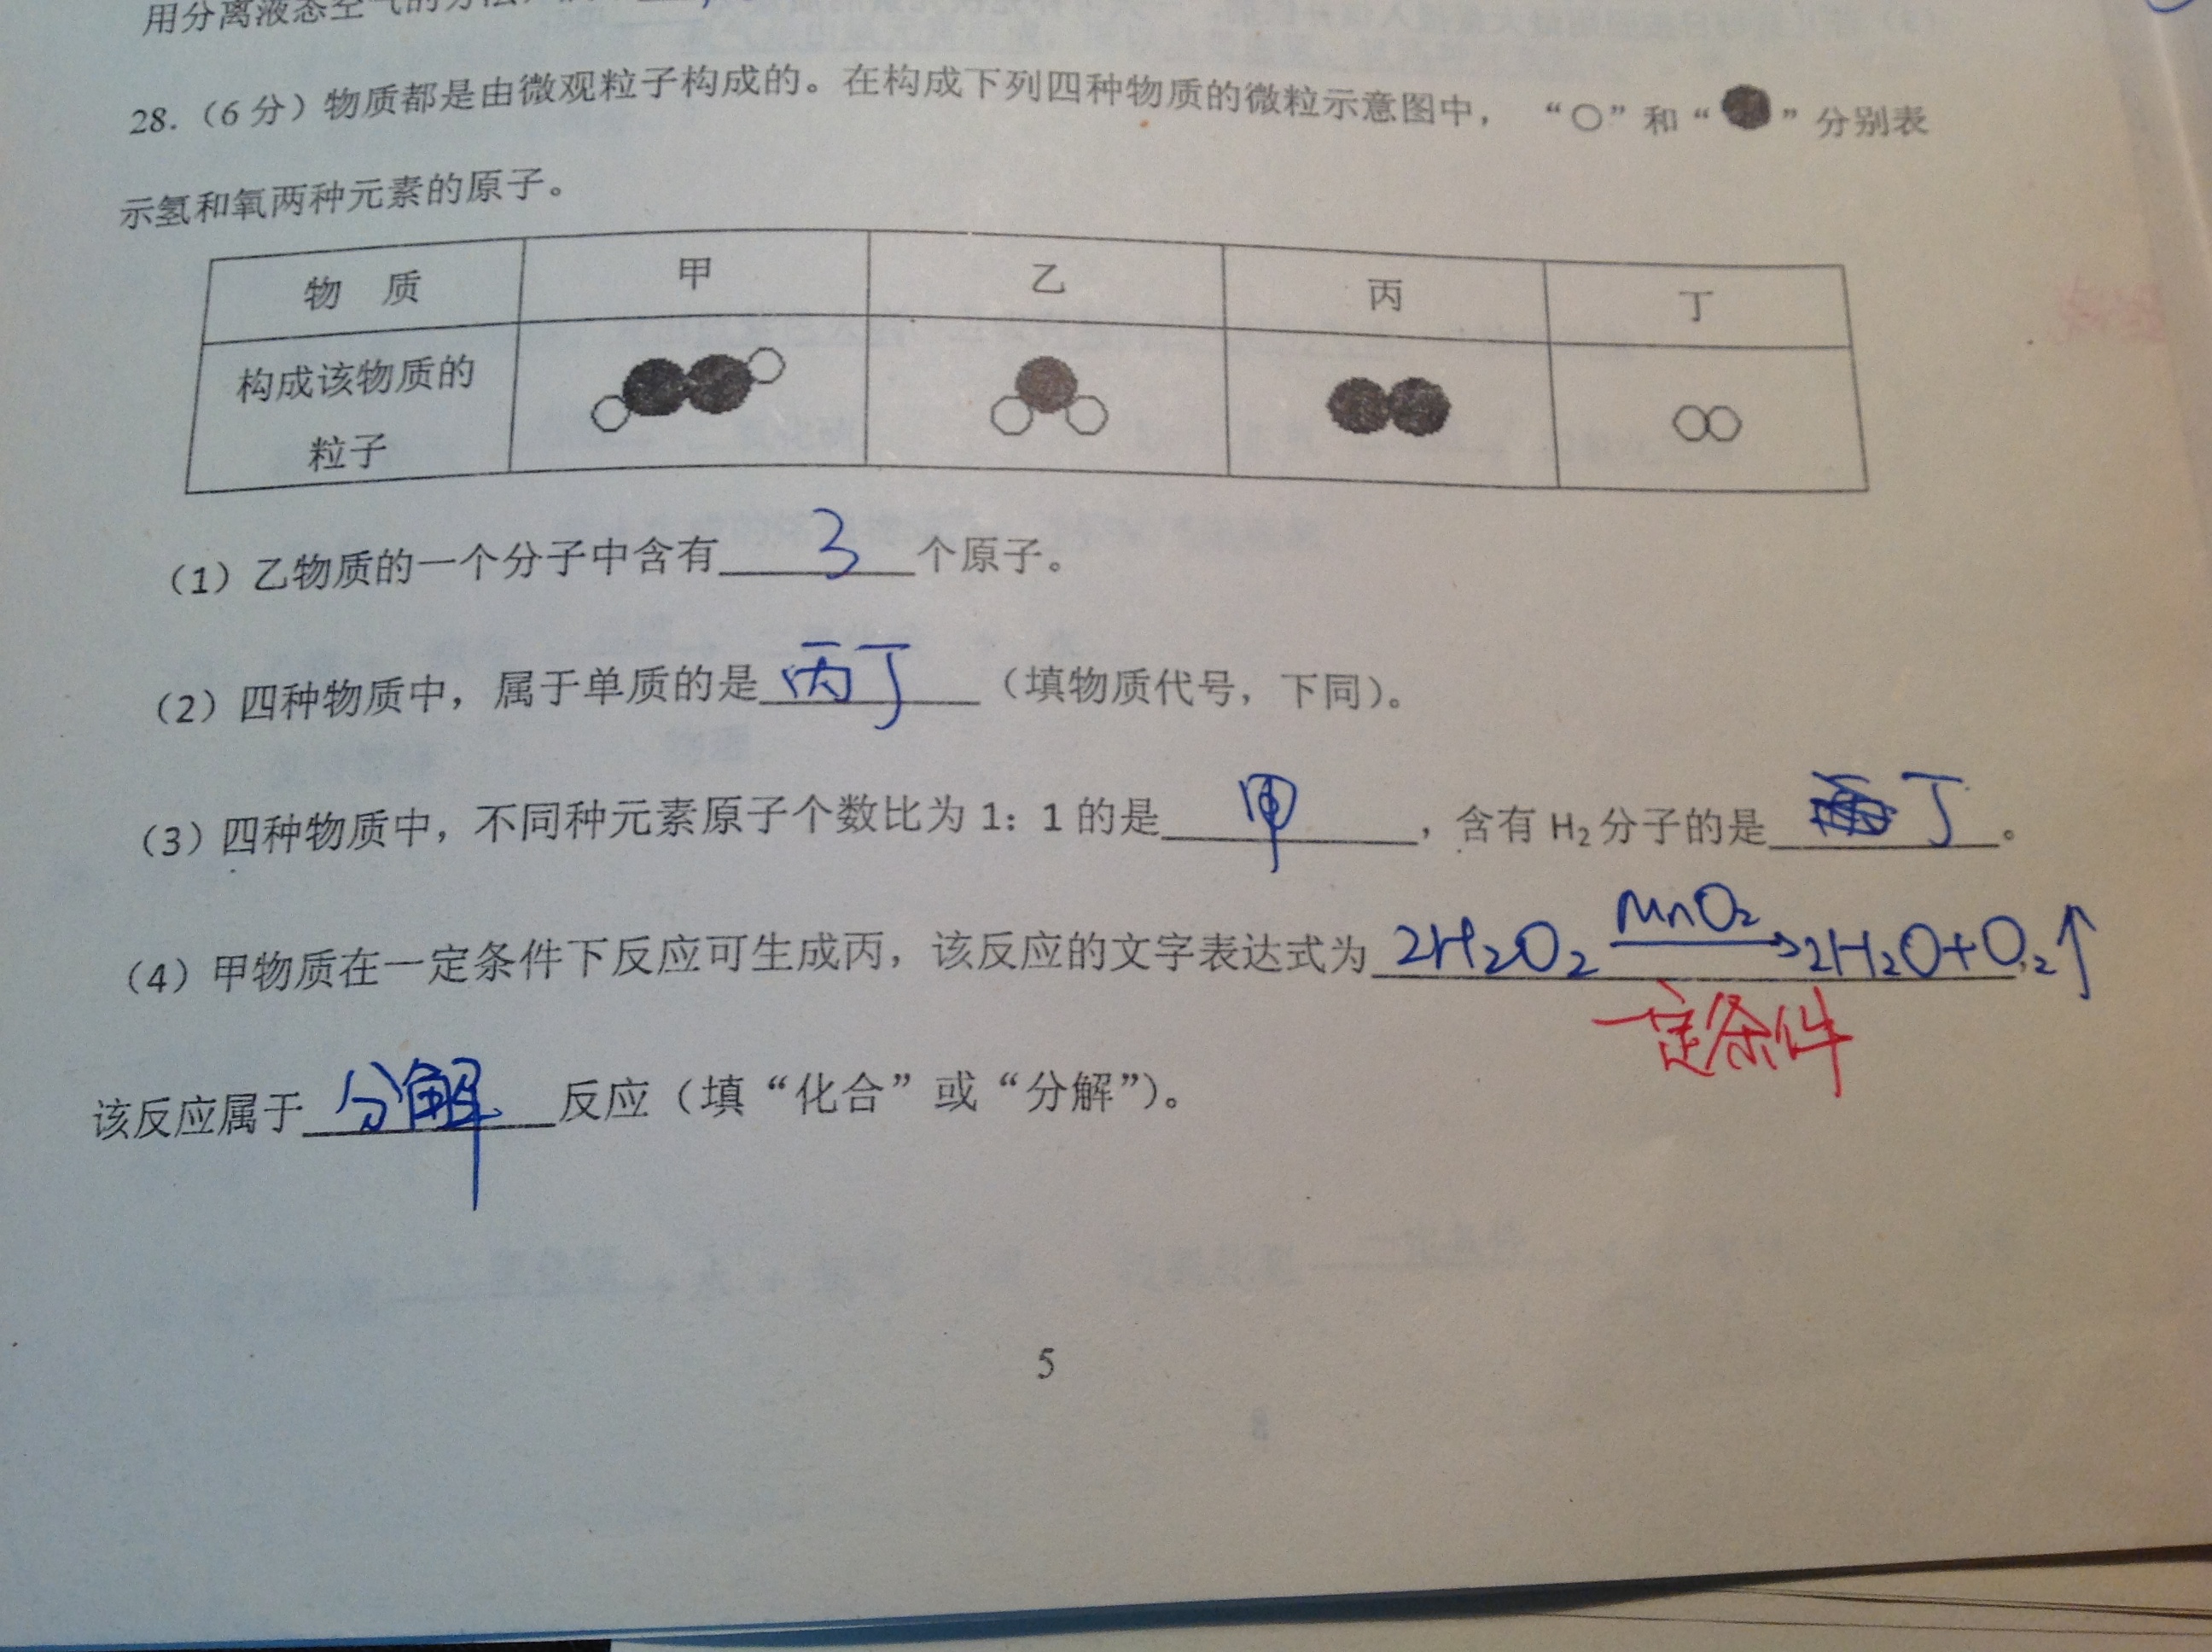 用分离液态空气的方法
28.（6 分）物质都是由微观粒子构成的。在构成下列四种物质的微粒示意图中， “○”和“●”分别表
示氢和氧两种元素的原子。
物 质 甲 乙 丙 丁
构成该物质的
粒子
（1）乙物质的一个分子中含有 3 个原子。
（2）四种物质中，属于单质的是 丙丁 （填物质代号，下同）。
（3）四种物质中，不同种元素原子个数比为 1：1 的是 甲 ，含有 H₂ 分子的是 丁 。
（4）甲物质在一定条件下反应可生成丙，该反应的文字表达式为 2H₂O₂ MnO₂→ 2H₂O+O₂↑
一定条件
该反应属于 分解 反应（填“化合”或“分解”）。
5